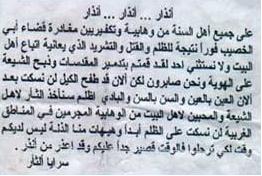 أنذار ... أنذار ... أنذار
على جميع أهل السنة من وهابية وتكفيريين مغادرة قضاء أبي
الخصيب فوراً نتيجة للظلم والقتل والتشريد الذي يعانيه اتباع أهل
البيت ولا نستثني احد لقد قمتم بتدمير المقدسات وذبح الشيعة
على الهوية ونحن صابرون لكن الان قد طفح الكيل لن نسكت بعد
ألان العين بالعين والسن بالسن والبادي اظلم سنأخذ الثأر لاهل
الشيعة والمحبين لاهل البيت من الوهابية المجرمين في المناطق
الغربية لن نسكت على الظلم أبداً وهيهات منا الذلة ليس لديكم
وقت لكي ترحلوا فالوقت قصير جداً عليكم وقد اعذر من أنذر .
سرايا الثأر